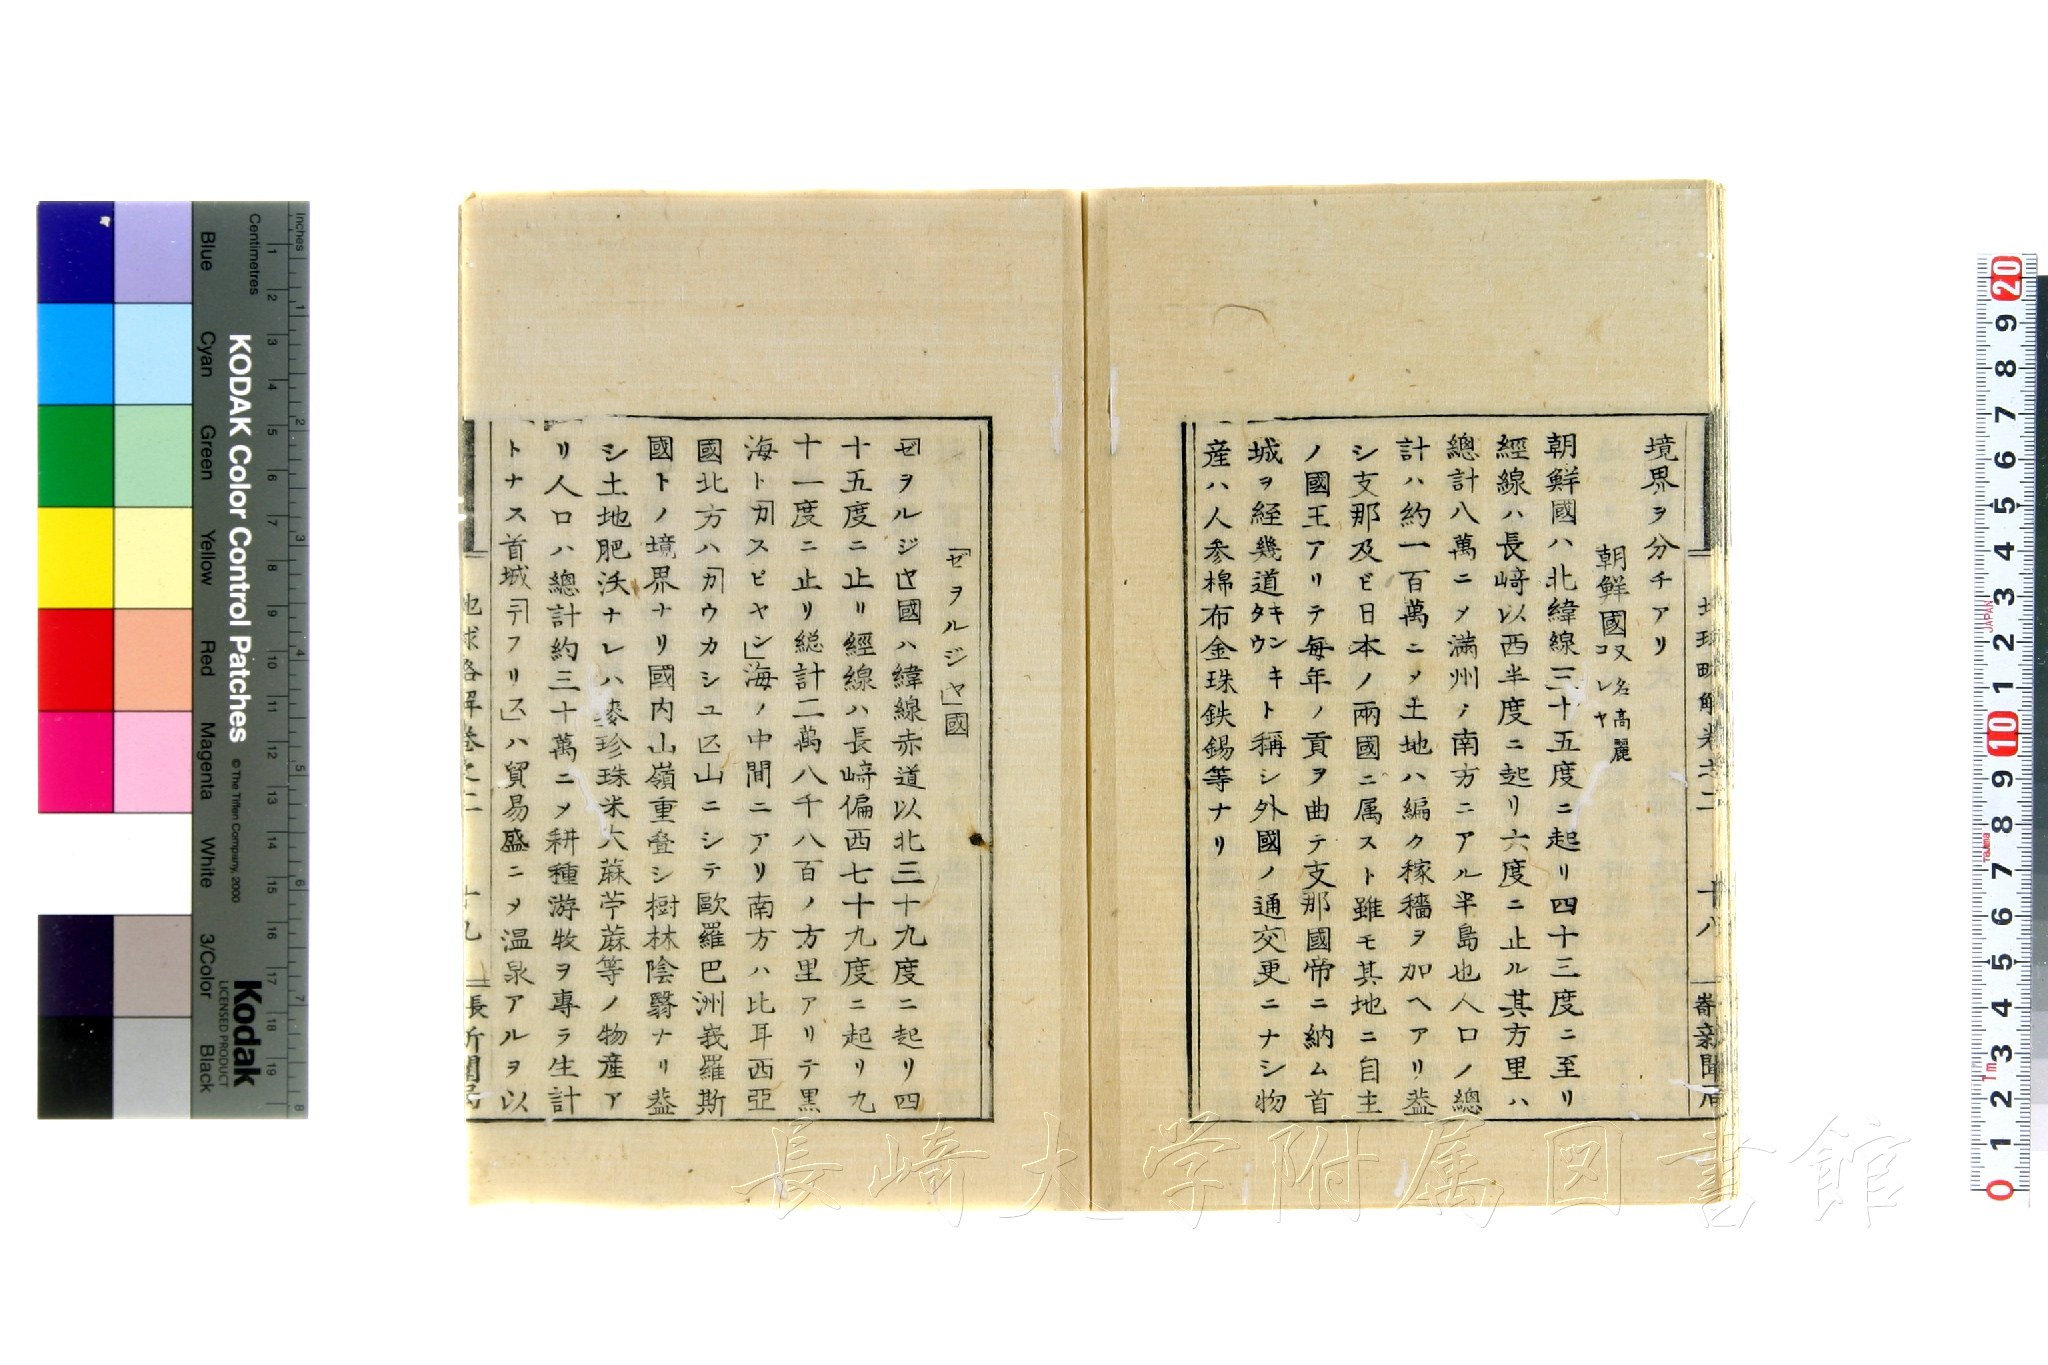 境界ヲ分チアリ
朝鮮國又名高麗
コレヤ
朝鮮國ハ北緯線三十五度ニ起リ四十三度ニ至リ
經線ハ長﨑以西半度ニ起リ六度ニ止ル其方里ハ
總計八萬ニメ満州ノ南方ニアル半島也人口ノ總
計ハ約一百萬ニメ土地ハ編ク稼穡ヲ加ヘアリ蓋
シ支那及ビ日本ノ兩國ニ属スト雖モ其地ニ自主
ノ國王アリテ毎年ノ貢ヲ曲テ支那國帝ニ納ム首
城ヲ経幾道キンキタウト稱シ外國ノ通交更ニナシ物
産ハ人参棉布金珠鉄錫等ナリ
十八
﨑新聞局
「ゼヲルジヤ」國
「ゼヲルジヤ」國ハ緯線赤道以北三十九度ニ起リ四
十五度ニ止リ經線ハ長﨑偏西七十九度ニ起リ九
十一度ニ止リ総計二萬八千八百ノ方里アリテ黒
海ト「カスピヤン」海ノ中間ニアリ南方ハ比耳西亞
國北方ハ「カウカシユ」山ニシテ歐羅巴洲峩羅斯
國トノ境界ナリ國内山嶺重疊シ樹林陰翳ナリ蓋
シ土地肥沃ナレハ麥珍珠米大蔴苧蔴等ノ物産ア
リ人口ハ總計約三十萬ニメ耕種游牧ヲ專ラ生計
トナス首城「テフリス」ハ貿易盛ニメ温泉アルヲ以
地球略解巻之二
十九
長﨑新聞局
KODAK Color Control Patches
© The Tiffen Company, 2000
Kodak
LICENSED PRODUCT
Inches
Centimetres
Blue
Cyan
Green
Yellow
Red
Magenta
White
3/Color
Black
長崎大学附属図書館